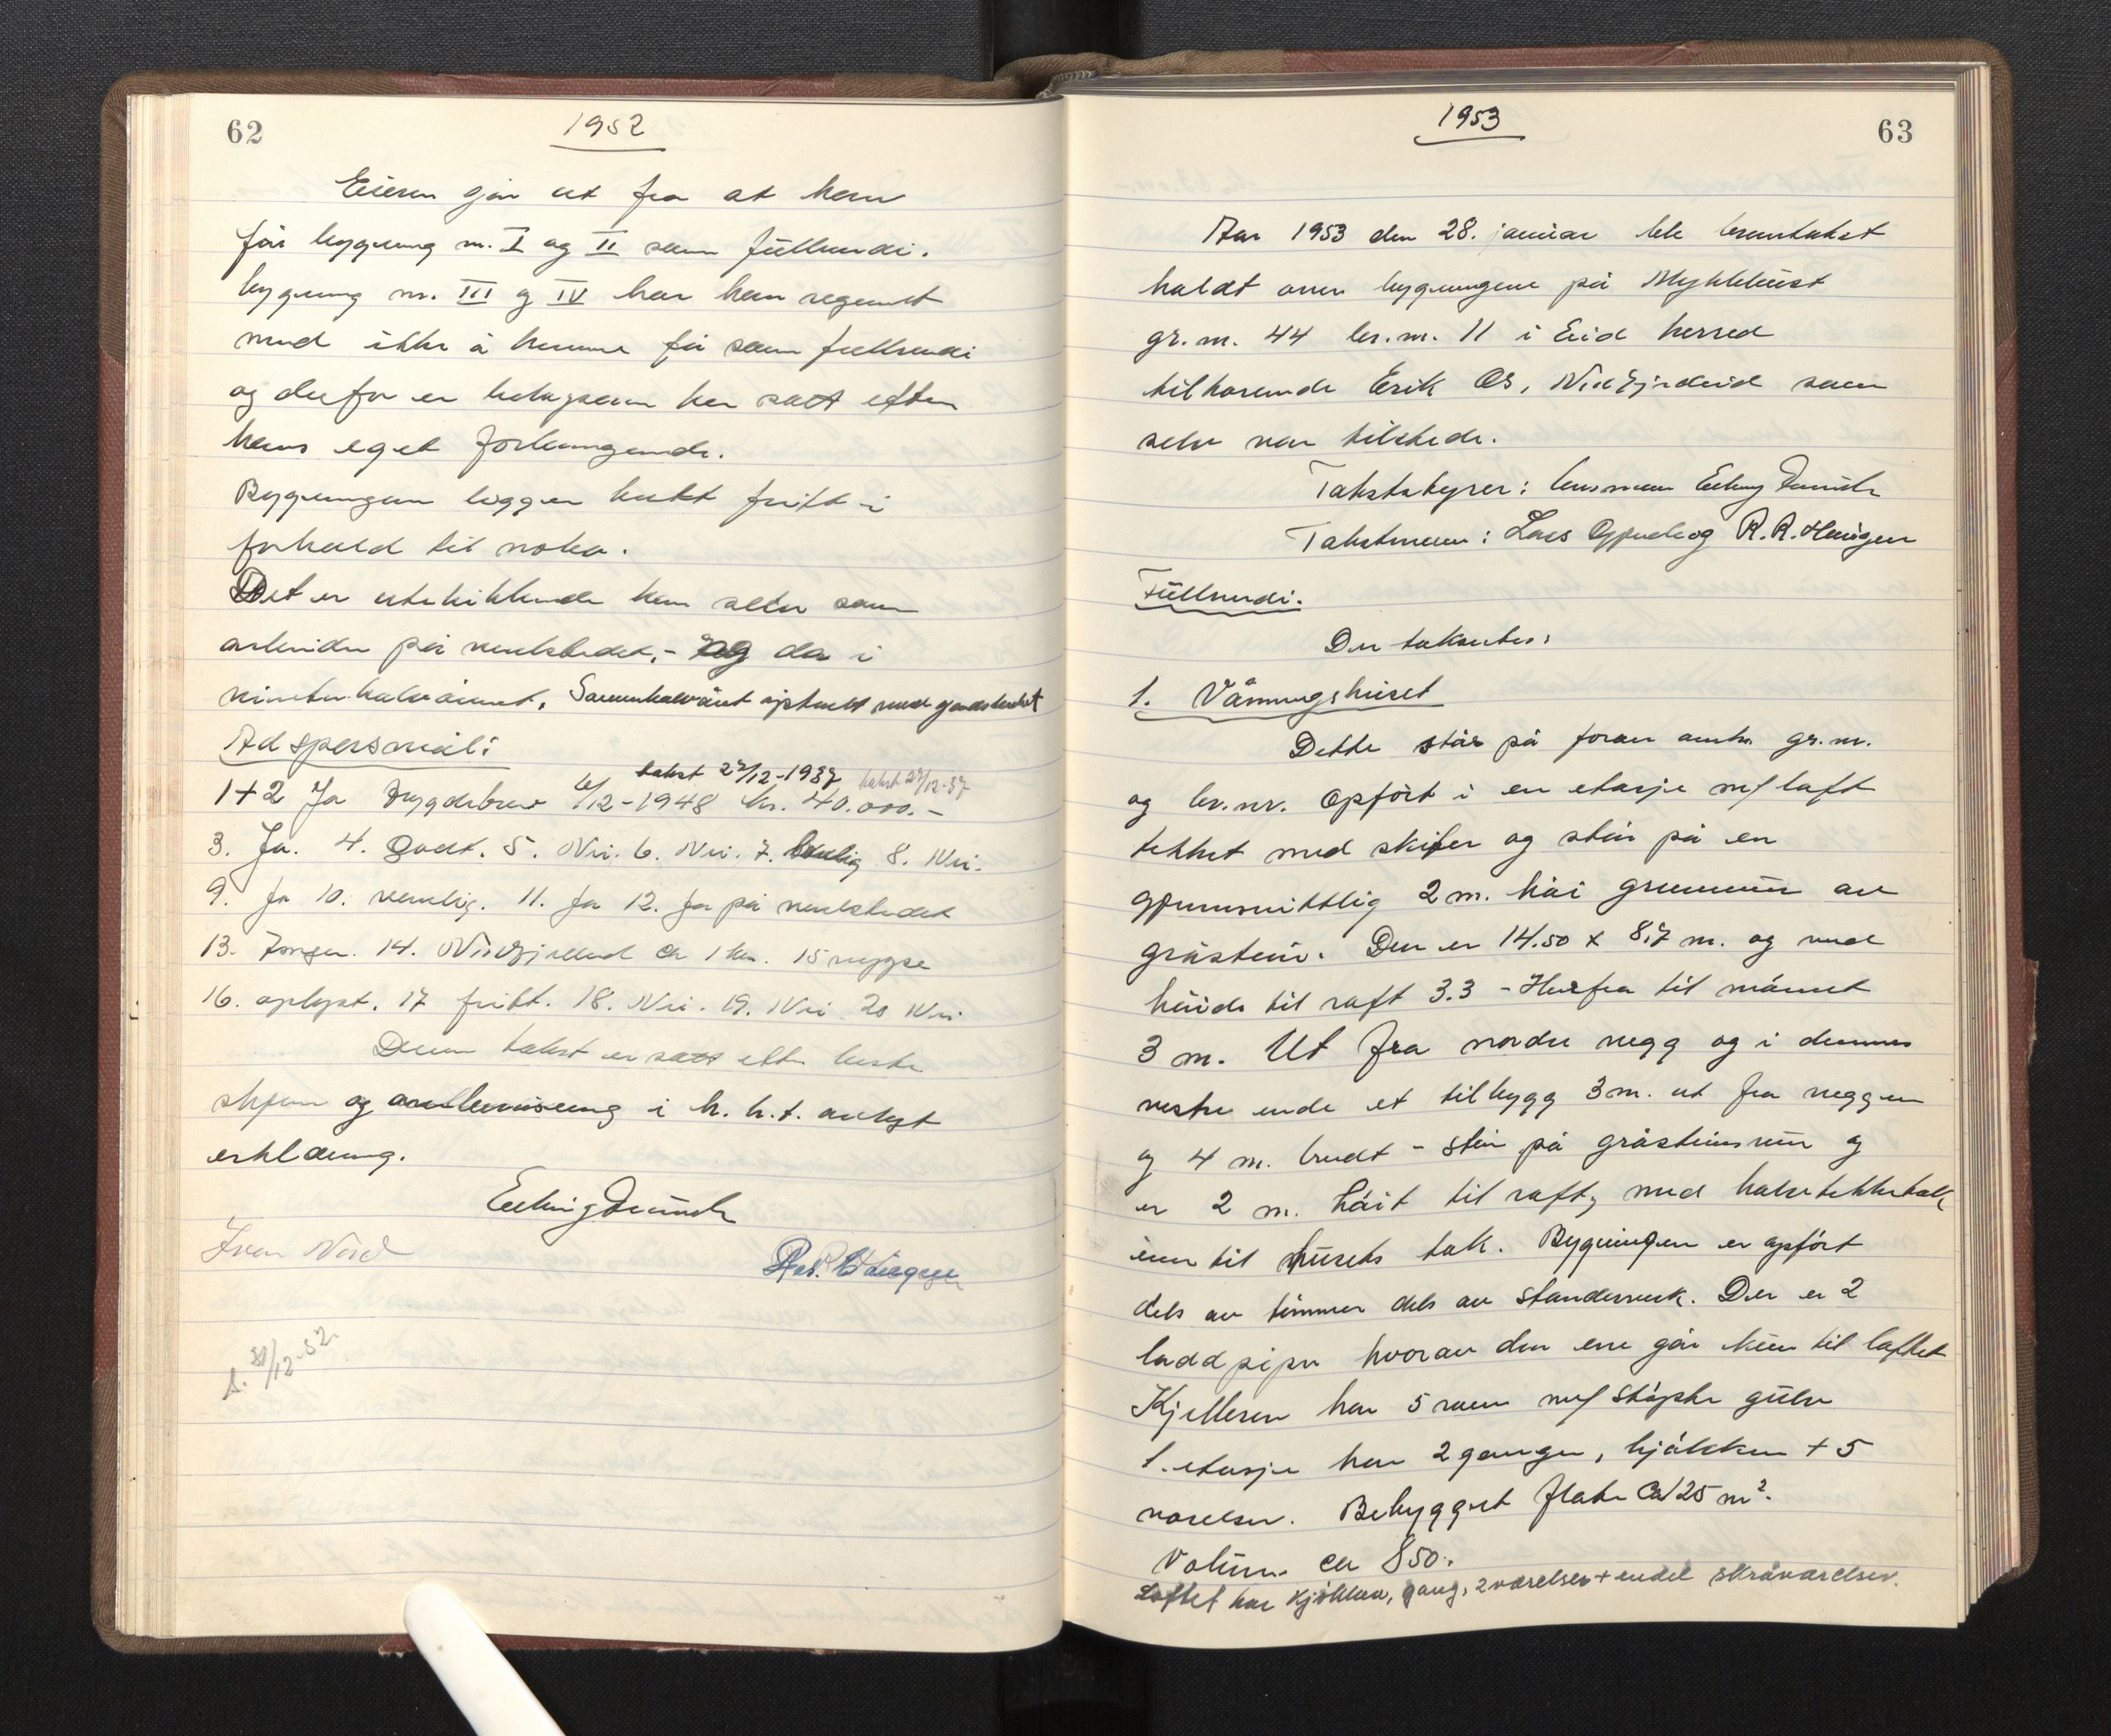 62
1952
Eieren går ut fra at han
får bygning nr. I og II som fullverdi.
bygning nr. III og IV har han regnet
med ikke å kunne få som fullverdi
og derfor er beløpene her satt etter
hans eget forlangende.
Bygningen ligger bukt fritt i
forhold til noko.
Det er utelukkende han selv som
arbeider på verkstedet, - og da i
vinterhalvåret. Sommerhalvåret optatt med gardsbruket
Ad spørsmål:
takst 27/12-1937 takst 27/12-37
1+2 Ja Trygdebrev 6/12-1948 kr. 40.000.-
3. Ja. 4. Godt. 5. Nei. 6. Nei. 7. 8. Nei.
9. Ja 10. vanlig. 11. Ja 12. Ja på verkstedet
13. Ingen. 14. Nordfjordeid ca 1 km. 15 nygse
16. oplyst. 17 fritt. 18. Nei. 19. Nei 20 Nei
Denne takst er satt etter beste
skjønn og i h. h. t. avlagt
erklæring.
Iver Nord
31/12-52.
1953
63
Aar 1953 den 28. januar ble branntakst
holdt over bygningene på Myklebust
gr.nr. 44 br.nr. 11 i Eid herred
tilhørende Erik Os, Nordfjordeid som
selv var tilstede.
Takstbyrer: lensmann Erling
Takstmenn: Lars og R. R. Haugen
Fullverdi.
Der takseres:
1. Våningshuset
Dette står på foran anf. gr.nr.
og br.nr. Opført i en etasje m/ loft
tekket med skifer og står på en
gjennomsnittlig 2 m. høi grunnmur av
gråstein. Den er 14.50 x 8.7 m. og med
høide til raft 3.3 - Herfra til mønet
3 m. Ut fra nordre vegg og i dennes
vestre ende et tilbygg 3 m. ut fra veggen
og 4 m. bredt - står på gråsteinsmur og
er 2 m. høit til raft, med halvtekketak
inn til husets tak. Bygningen er opført
dels av tømmer dels av standerverk. Der er 2
laddpiper hvorav den ene går kun til loftet
Kjelleren har 5 rum m/ støpte gulv
1. etasje har 2 ganger, kjøkken + 5
værelser. Bebygget flate ca 125 m².
Volum ca 850.
Loftet har kjøkken, gang, 2 værelser + endel skråværelser.